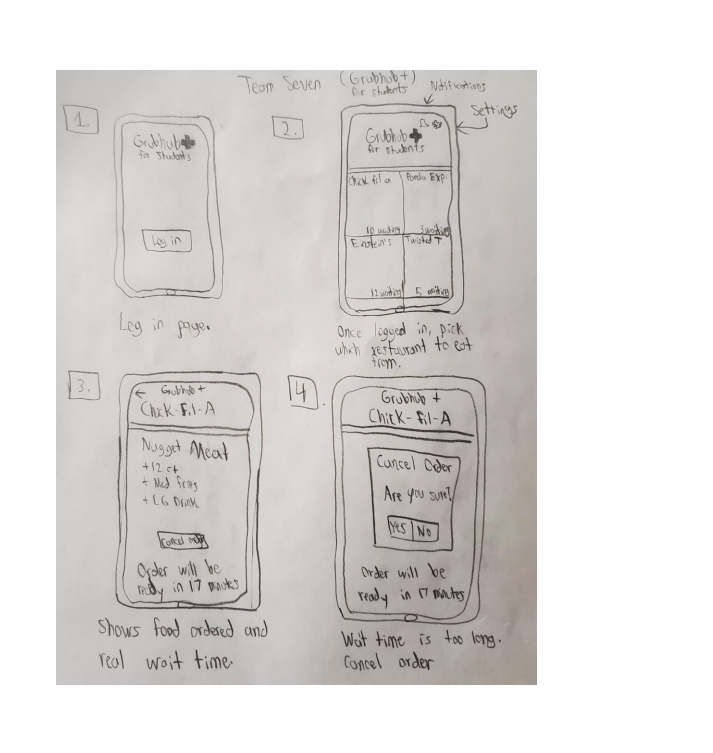 Team Seven (Grubhub+)
for students
Notifications
Settings
1.
Grubhub+
for students
Log in
Log in page.
2.
Grubhub+
for students
Chick fil a
Panda Exp.
10 waiting
3 waiting
Einstein's
Twisted T.
12 waiting
5 waiting
Once logged in, pick
which restaurant to eat
from.
3.
← Grubhub+
Chick-Fil-A
Nugget Meat
+12 ct
+ Med fries
+ LG Drink
Cancel order
Order will be
ready in 17 minutes
Shows food ordered and
real wait time.
4.
Grubhub +
Chick-Fil-A
Cancel Order
Are you sure?
Yes No
Order will be
ready in 17 minutes
Wait time is too long.
Cancel order